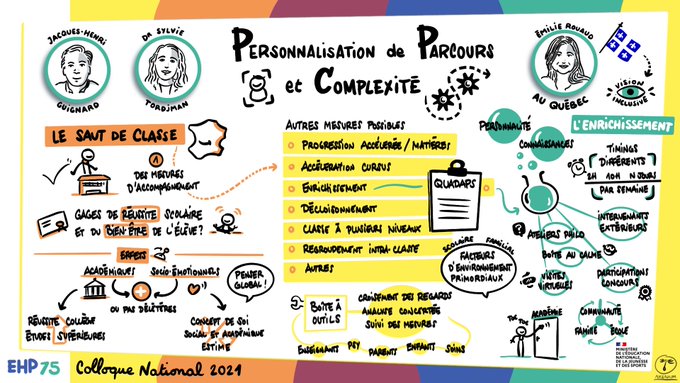 Jacques-Henri
Guignard
Dr Sylvie
Tordjman
Personnalisation de Parcours
et Complexité
Émilie Rouaud
au Québec
Vision
inclusive
Le saut de classe
1
des mesures
d'accompagnement
Gages de réussite scolaire
et du bien être de l'élève?
Effets
Académiques
Socio-émotionnels
ou pas délétères
Penser
global!
Réussite collège
études supérieures
Concept de soi
social et académique
estime
Autres mesures possibles
Progression accélerée / matières
Accéleration cursus
Enrichissement
Décloisonnement
Classe à plusieurs niveaux
Regroupement intra-classe
Autres
Quadaps
Scolaire
Familial
Facteurs
d'environnement
primordiaux
Boîte à
outils
Croisement des regards
Analyse concertée
Suivi des mesures
Enseignant
Psy
Parents
Enfants
Soins
Personnalité
Connaissances
L'enrichissement
Timings
différents
2H 10H N jours
par semaine
Intervenants
extérieurs
Ateliers philo
Boîte au calme
Visites
virtuelles
Participations
concours
Toc
Toc
Académie
Communauté
Famille
École
EHP 75
Colloque National 2021
MINISTÈRE
DE L'ÉDUCATION
NATIONALE,
DE LA JEUNESSE
ET DES SPORTS